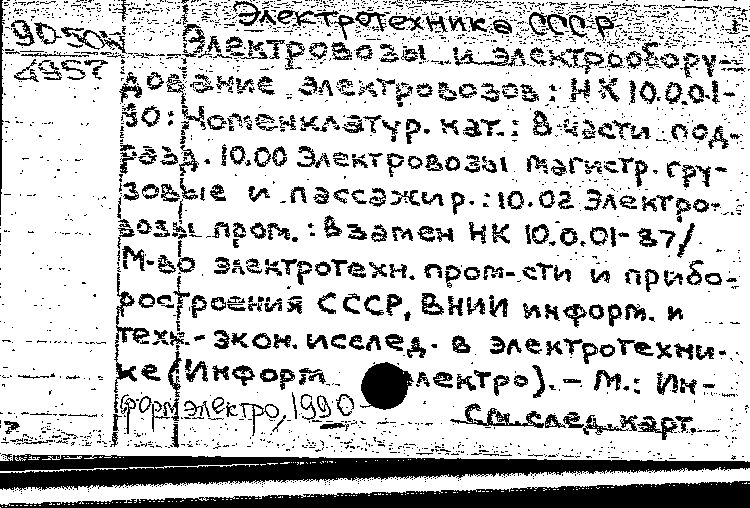 Электротехника СССР
90-50к
4957
Электровозы и электрообору-
дование электровозов: НК 10.0.01-
90: Номенклатур. кат.: В части под-
разд. 10.00 Электровозы магистр. гру-
зовые и пассажир.: 10.02 Электро-
возы пром.: Взамен НК 10.0.01-87/
М-во электротехн. пром-сти и прибо-
ростроения СССР, ВНИИ информ. и
техн.-экон. исслед. в электротехни-
ке (Информэлектро). – М.: Ин-
формэлектро, 1990
См. след. карт.